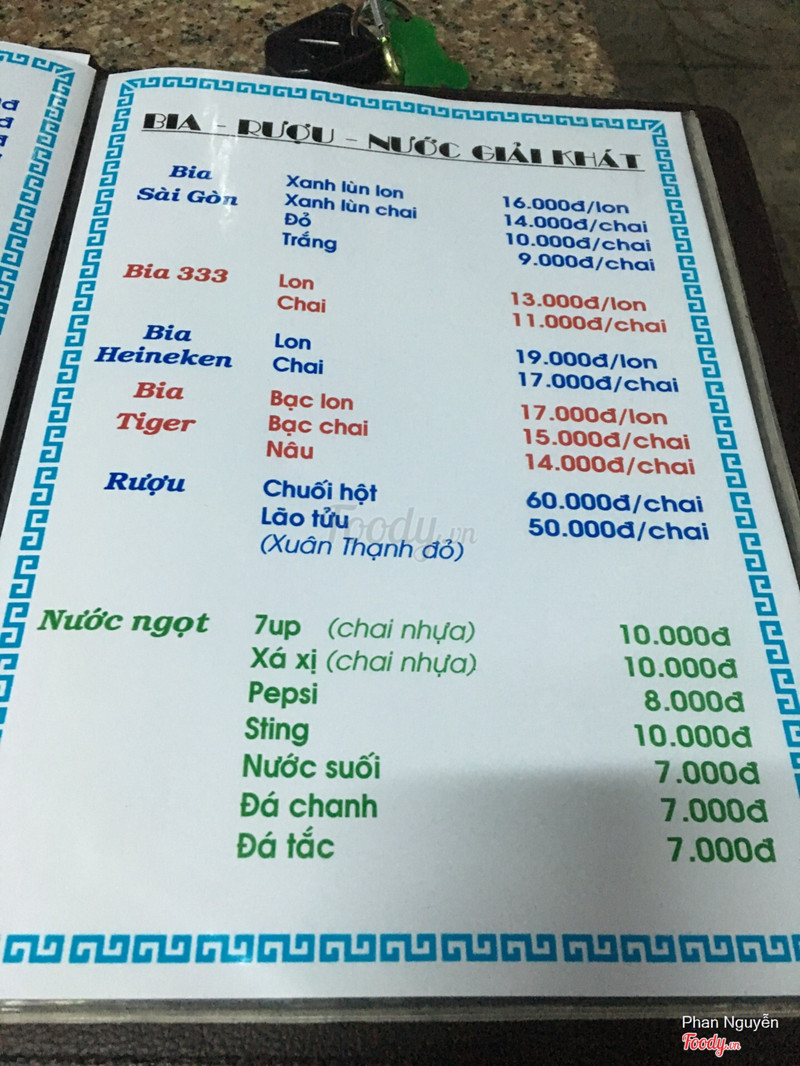 BIA - RƯỢU - NƯỚC GIẢI KHÁT
Bia Sài Gòn Xanh lùn lon 16.000đ/lon
Xanh lùn chai 14.000đ/chai
Đỏ 10.000đ/chai
Trắng 9.000đ/chai
Bia 333 Lon 13.000đ/lon
Chai 11.000đ/chai
Bia Heineken Lon 19.000đ/lon
Chai 17.000đ/chai
Bia Tiger Bạc lon 17.000đ/lon
Bạc chai 15.000đ/chai
Nâu 14.000đ/chai
Rượu Chuối hột 60.000đ/chai
Lão tửu 50.000đ/chai
(Xuân Thạnh đỏ)
Foody.vn
Nước ngọt 7up (chai nhựa) 10.000đ
Xá xị (chai nhựa) 10.000đ
Pepsi 8.000đ
Sting 10.000đ
Nước suối 7.000đ
Đá chanh 7.000đ
Đá tắc 7.000đ
Phan Nguyễn
Foody.vn